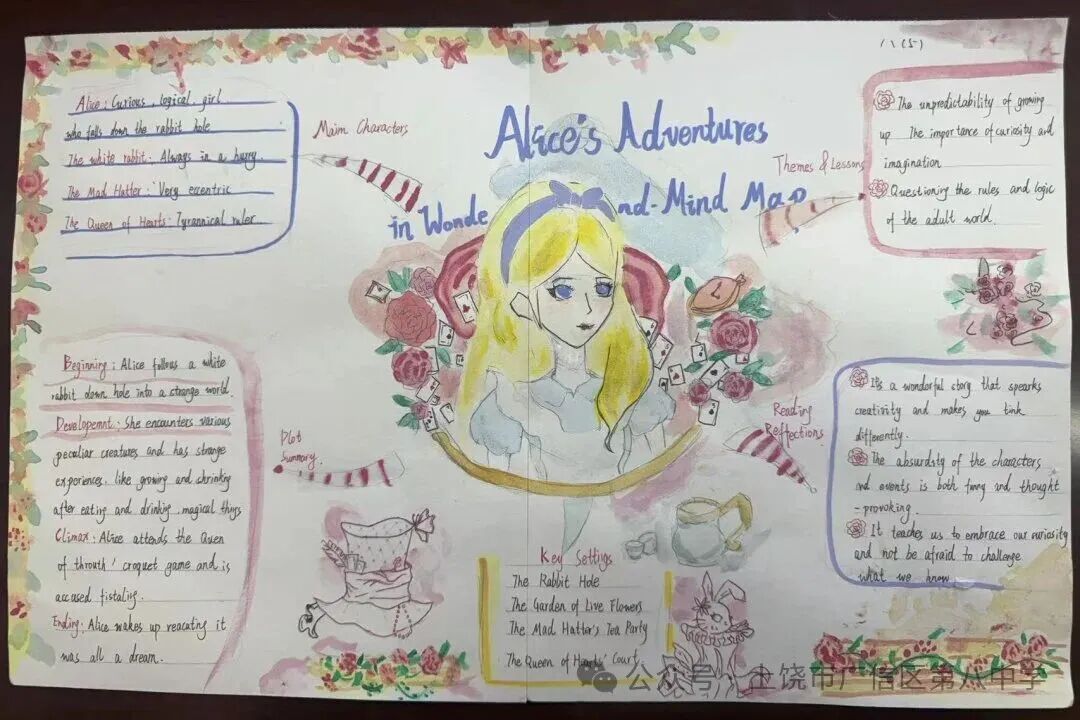 八(5)
Alice's Adventures
in Wonde nd-Mind Map
Main Characters
Alice: Curious, logical, girl
who falls down the rabbit hole
The white rabbit: Always in a hurry.
The Mad Hatter: Very eccentric
The Queen of Hearts: Tyrannical ruler
Themes & Lessons
The unpredictability of growing
up The importance of curiosity and
imagination
Questioning the rules and logic
of the adult world.
Plot
Summary.
Beginning: Alice follows a white
rabbit down hole into a strange world
Developemnt: She encounters various
peculiar creatures and has strange
experiences, like growing and shrinking
after eating and drinking magical things
Climax: Alice attends the Queen
of throuth' croquet game and is
accused fistaling.
Ending: Alice wakes up reacating it
was all a dream.
Reading
Reflections
It's a wonderful story that spearks
creativity and makes you tink
differently.
The absurdity of the characters
and events is both funny and thought
-provoking.
It teaches us to embrace our curiosity
and not be afraid to challenge
what we know
Key Settings
The Rabbit Hole
The Garden of Live Flowers
The Mad Hatter's Tea Party
The Queen of Hearts' Court
公众号 上饶市广信区第八中学